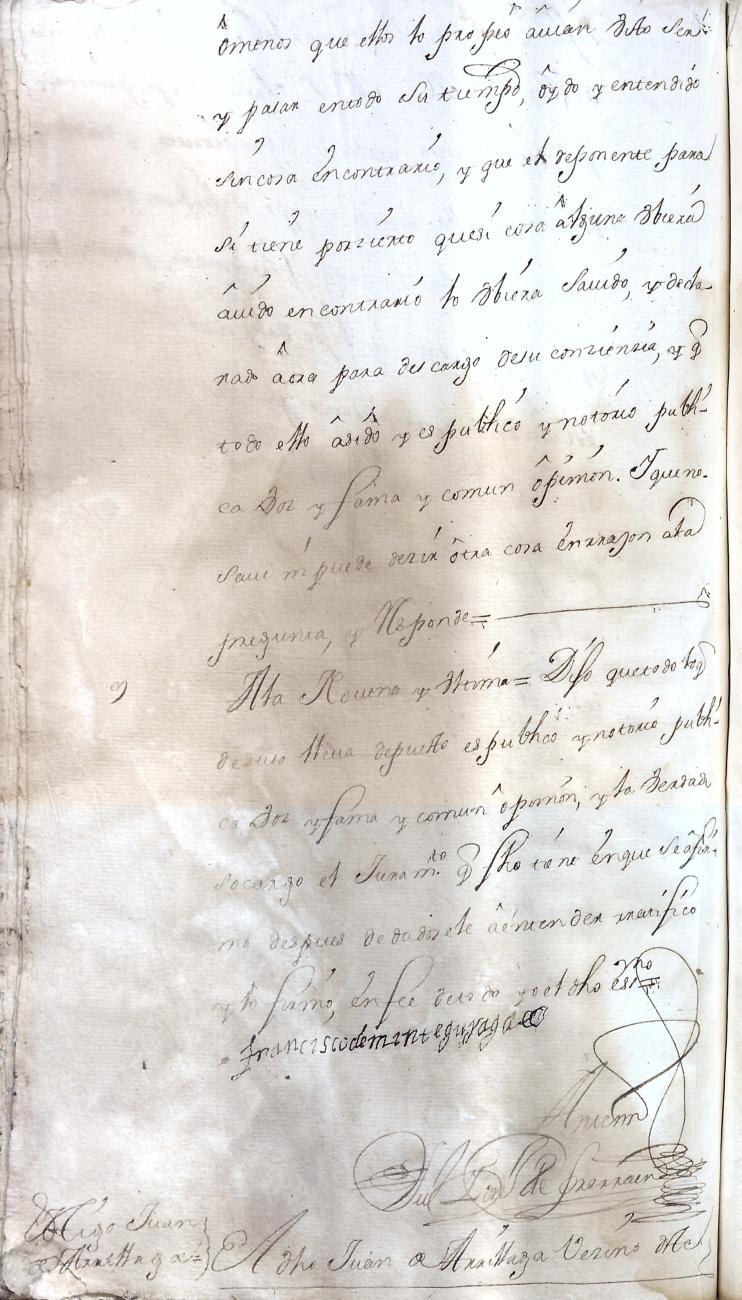 ô menos que ellos lo propio âuian dho ser
y pasar en todo su tiempo, ôydo y entendido
sin cosa en contrario, y que el deponente para
si tiene por zierto que si cosa âlguna vbiera
âuido en contrario lo vbiera sauido, y decla
rado âora para descargo de su conzienzia, y q
todo ello â sido y es publico y notorio publi-
ca voz y fama y comun ôpinion. Y que no
saui ni puede dezir ôtra cosa en rrazon a la
pregunta, y Responde=
9 A la Nouena y vltima= Dijo que todo lo q
de suso lleua depuesto es publico y notorio publi-
ca voz y fama y comun ôpinion, y la verdad
so cargo el Juramto q fho tiene en que se afir-
mo despues de dadosele â entender rratifico
y lo firmo, en fee de todo yo el dho essno
francisco de minteguyaga
Ante mi
de
Tigo Juan
de Arrillaga=
El dho Juan de Arrillaga Vezino de